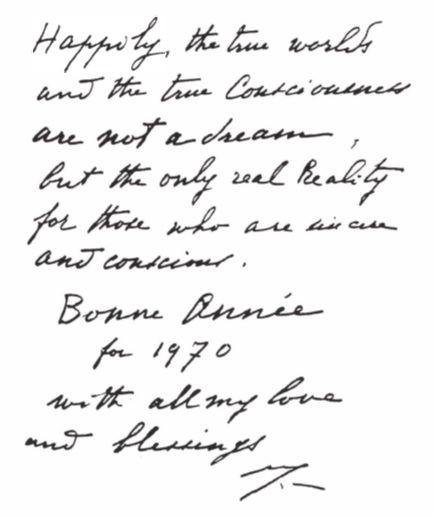 Happily, the true worlds
and the true Consciousness
are not a dream,
but the only real Reality
for those who are sincere
and conscious.
Bonne Année
for 1970
with all my love
and blessings